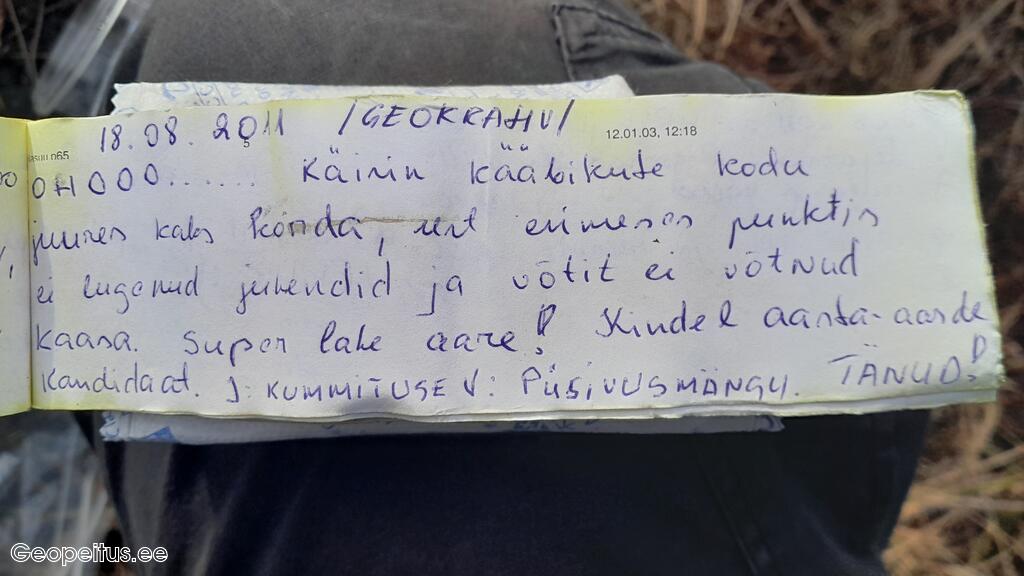 18.08.2011 /GEOKRAHV/
12.01.03, 12:18
OHOOO...... Käisin kääbikute kodu
juures kaks korda, sest esimeses punktis
ei lugenud juhendid ja võtit ei võtnud
kaasa. Super lahe aare! Kindel aasta-aarde
kandidaat. J: KUMMITUSE V: PÜSIVUSMÄNGU. TÄNUD!
Geopeitus.ee